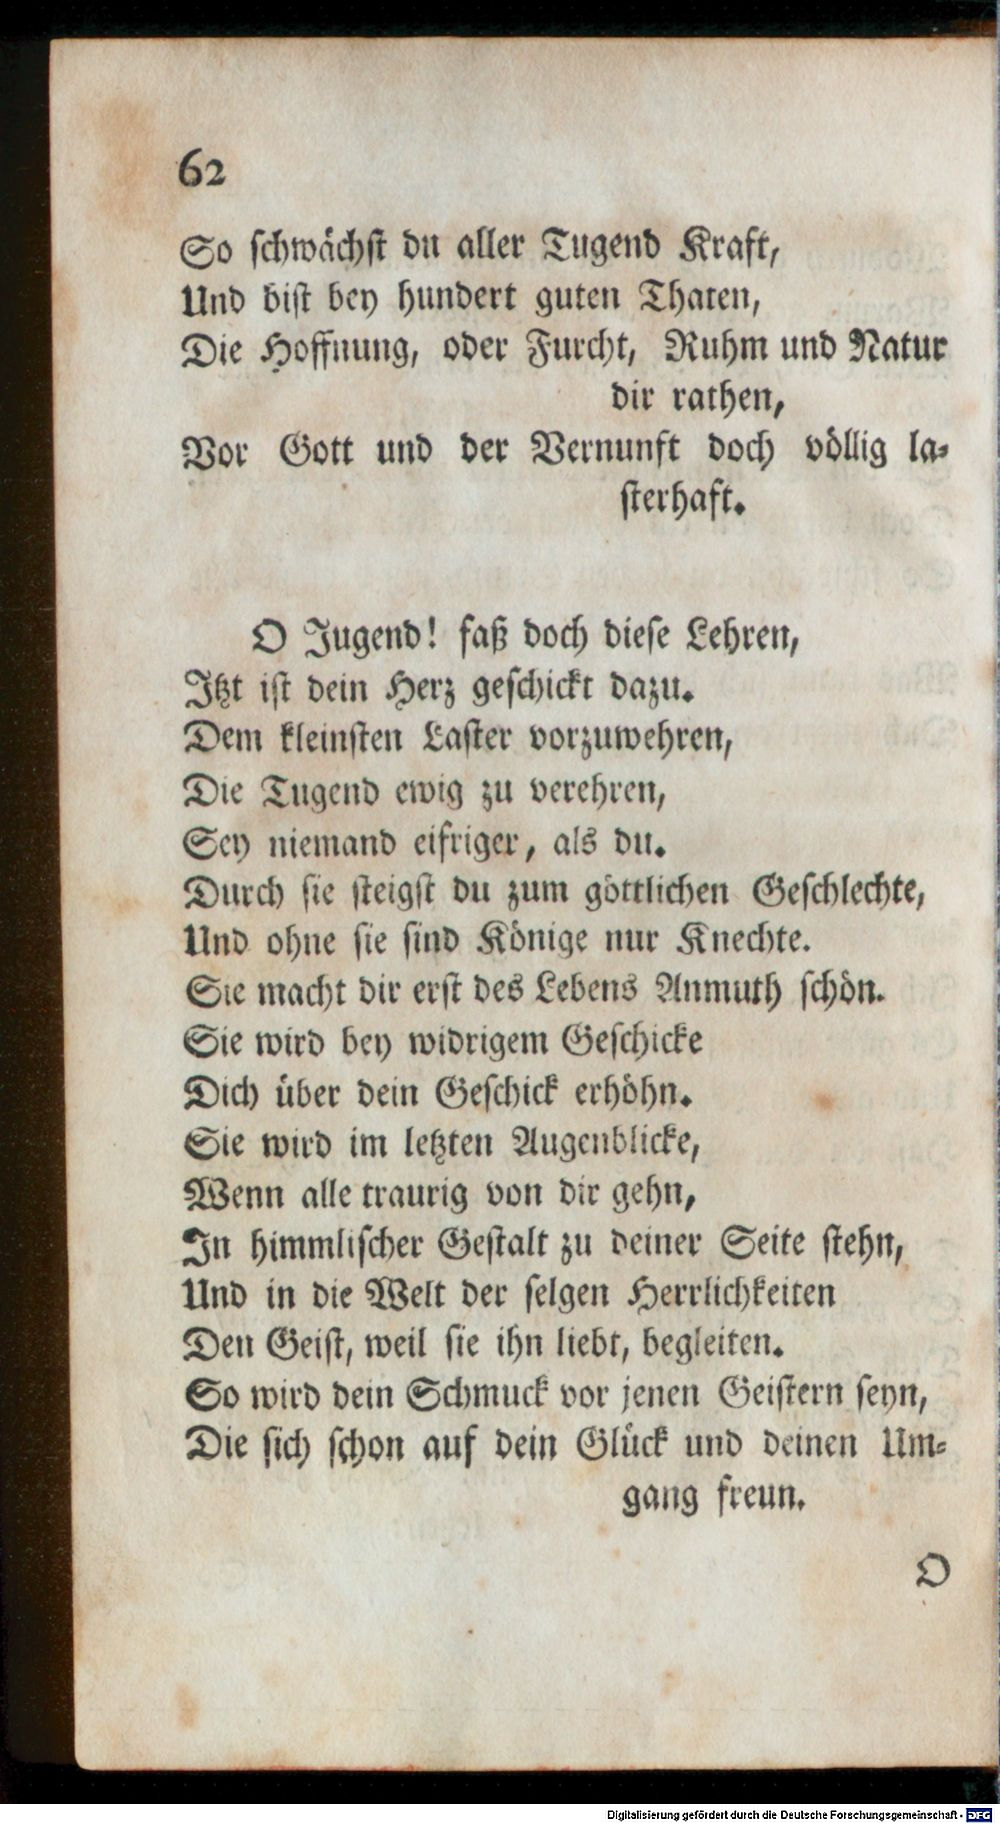 62
So schwächst du aller Tugend Kraft,
Und bist bey hundert guten Thaten,
Die Hoffnung, oder Furcht, Ruhm und Natur
dir rathen,
Vor Gott und der Vernunft doch völlig la-
sterhaft.
O Jugend! faß doch diese Lehren,
Itzt ist dein Herz geschickt dazu.
Dem kleinsten Laster vorzuwehren,
Die Tugend ewig zu verehren,
Sey niemand eifriger, als du.
Durch sie steigst du zum göttlichen Geschlechte,
Und ohne sie sind Könige nur Knechte.
Sie macht dir erst des Lebens Anmuth schön.
Sie wird bey widrigem Geschicke
Dich über dein Geschick erhöhn.
Sie wird im letzten Augenblicke,
Wenn alle traurig von dir gehn,
In himmlischer Gestalt zu deiner Seite stehn,
Und in die Welt der selgen Herrlichkeiten
Den Geist, weil sie ihn liebt, begleiten.
So wird dein Schmuck vor jenen Geistern seyn,
Die sich schon auf dein Glück und deinen Um-
gang freun.
O
Digitalisierung gefördert durch die Deutsche Forschungsgemeinschaft - DFG